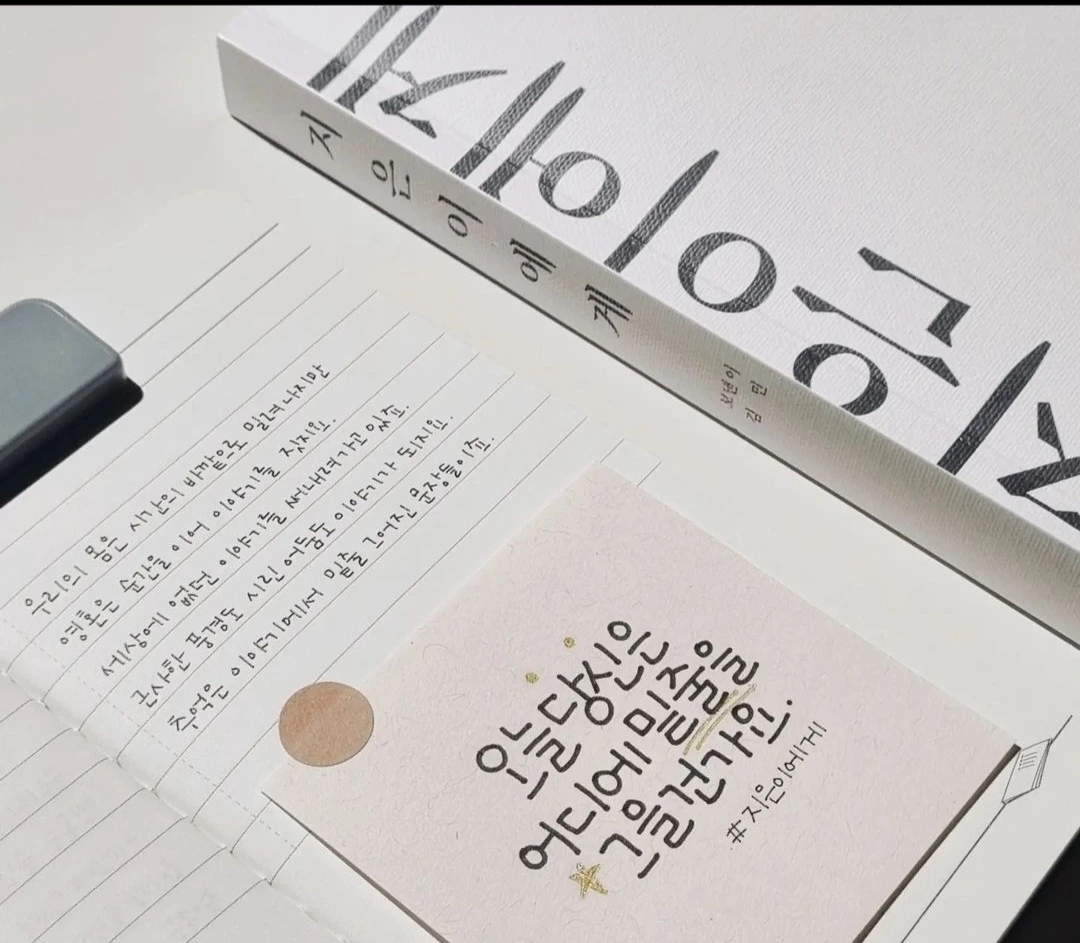 지은이에게
지은이에게
김 민
우리의 몸은 시간의 바깥으로 밀려나지만
영혼은 순간을 이어 이야기를 짓지요.
세상에 없던 이야기를 써내려가고 있죠.
근사한 풍경도 시린 어둠도 이야기가 되지요.
추억은 이야기에서 밑줄 그어진 문장들이죠.
오늘 당신은
어디에 밑줄을
그을건가요.
#지은이에게